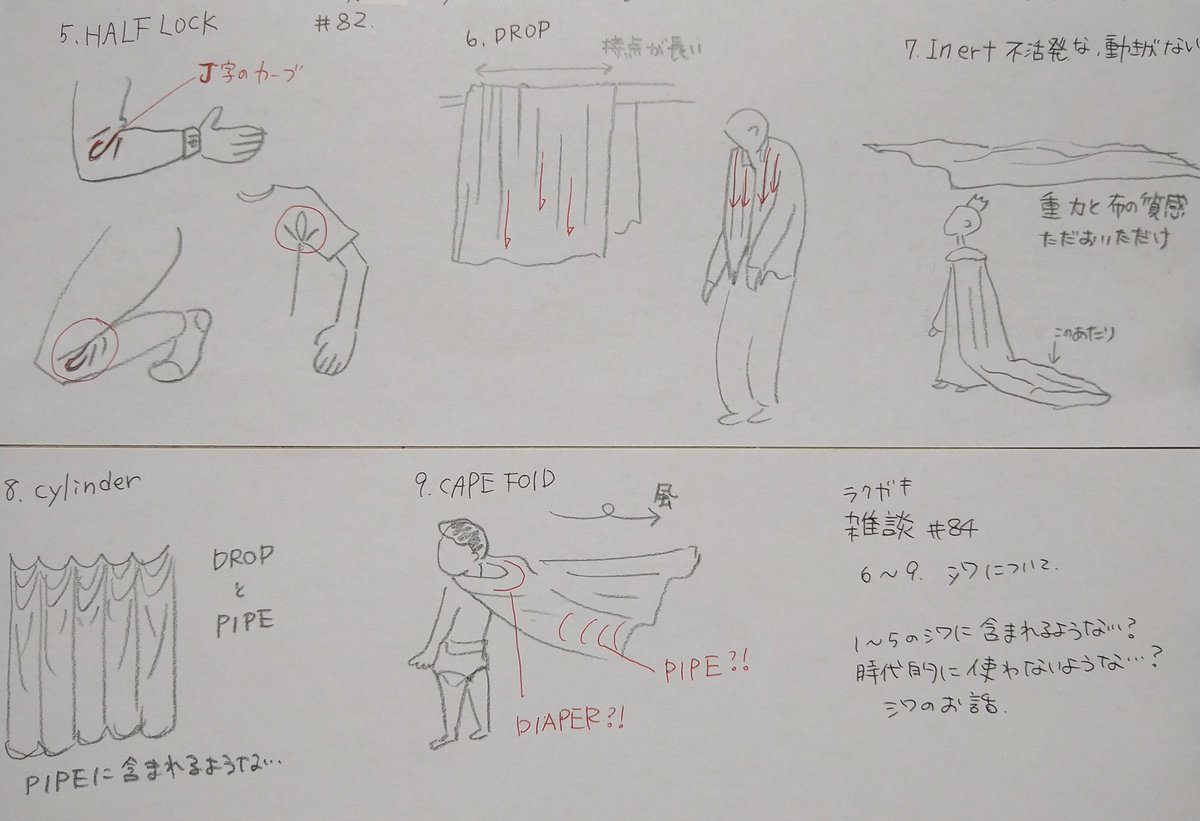 5. HALF LOCK
#82.
J字のカーブ
6. DROP
接点が長い
7. Inert 不活発な,動きがない
重力と布の質感
ただおいただけ
このあたり
8. cylinder
DROP
と
PIPE
PIPEに含まれるような…
9. CAPE FOlD
風
PIPE?!
DIAPER?!
ラクガキ
雑談 #84
6〜9. シワについて.
1〜5のシワに含まれるような…?
時代的に使わないような…?
シワのお話.